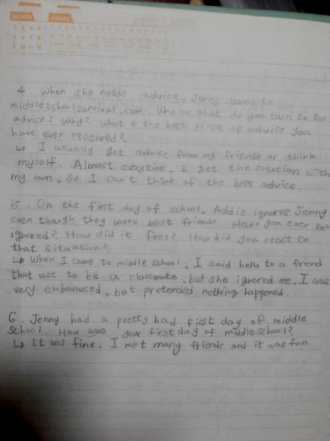 4. When she needs advice, Jenny turns to
middleschoolsurvival.com. Who or what do you turn to for
advice? Why? What is the best piece of advice you
have ever received?
↳ I usually get advice from my friends or think
myself. Almost everytime, I get the solution with
my own. So I can't think of the best advice.
5. On the first day of school, Addie ignores Jenny
even though they were best friends. Have you ever
ignored? How did it feel? How did you react to
that situation?
↳ When I came to middle school, I said hello to a friend
that use to be a classmate, but she ignored me. I was
very embarrased, but pretended nothing happened.
6. Jenny had a pretty bad first day of middle
School. How was your first day of middle school?
↳ It was fine. I met many friends and it was fun